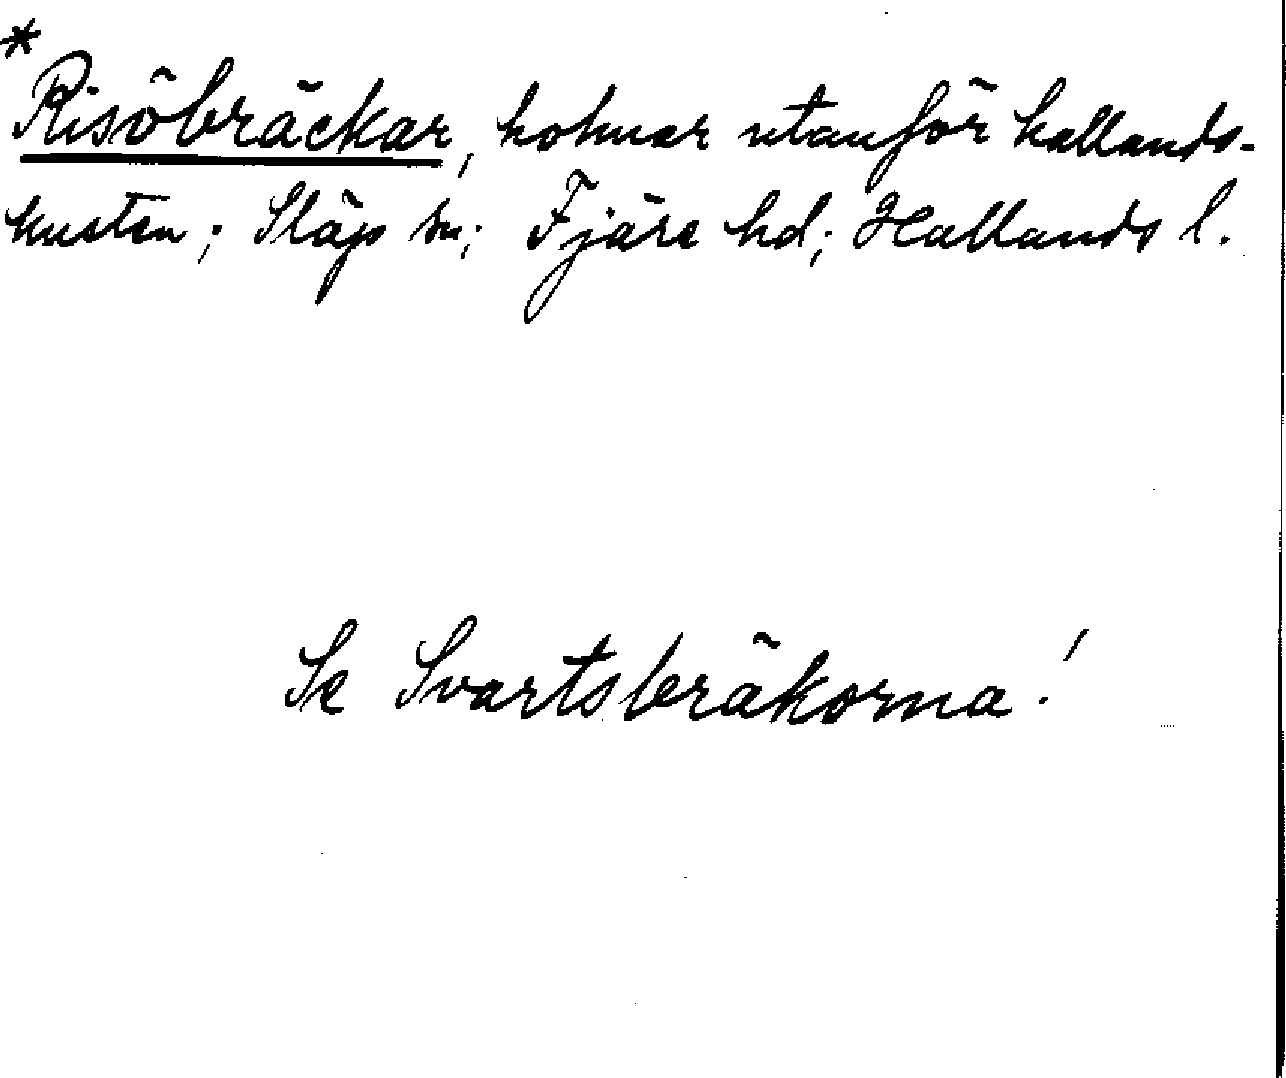 *
Risöbräckar, holmar utanför hallands-
kusten; Släp sn; Fjäre hd; Hallands l.
Se Svartsbräkorna!